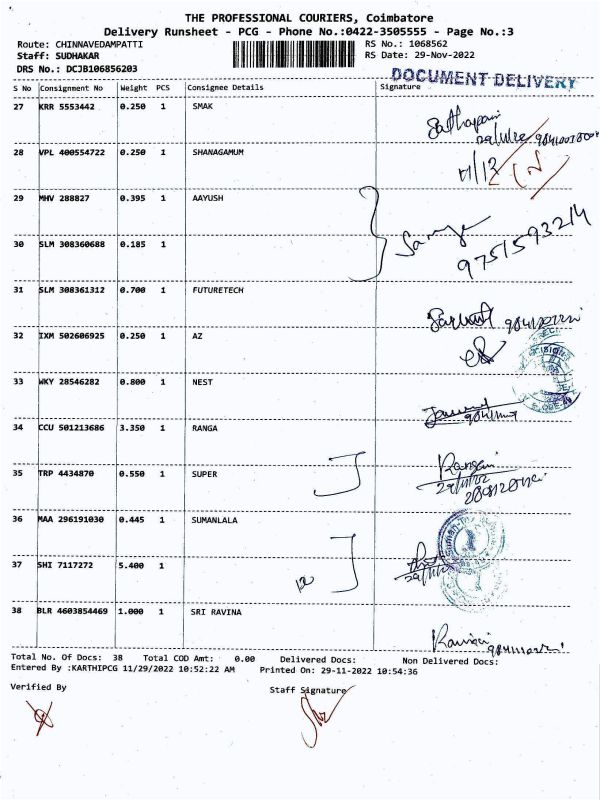 THE PROFESSIONAL COURIERS, Coimbatore
Delivery Runsheet - PCG - Phone No.:0422-3505555 - Page No.:3
Route: CHINNAVEDAMPATTI RS No.: 1068562
Staff: SUDHAKAR RS Date: 29-Nov-2022
DRS No.: DCJB106856203
DOCUMENT DELIVERY
S No Consignment No Weight PCS Consignee Details Signature
27 KRR 5553442 0.250 1 SMAK
28 VPL 400554722 0.250 1 SHANAGAMUM
29 MHV 288827 0.395 1 AAYUSH
30 SLM 308360688 0.185 1
9751593214
31 SLM 308361312 0.700 1 FUTURETECH
32 IXM 502606925 0.250 1 AZ
33 WKY 28546282 0.800 1 NEST
34 CCU 501213686 3.350 1 RANGA
35 TRP 4434870 0.550 1 SUPER
36 MAA 296191030 0.445 1 SUMANLALA
37 SHI 7117272 5.400 1
38 BLR 4603854469 1.000 1 SRI RAVINA
Total No. Of Docs: 38 Total COD Amt: 0.00 Delivered Docs: Non Delivered Docs:
Entered By :KARTHIPCG 11/29/2022 10:52:22 AM Printed On: 29-11-2022 10:54:36
Verified By Staff Signature